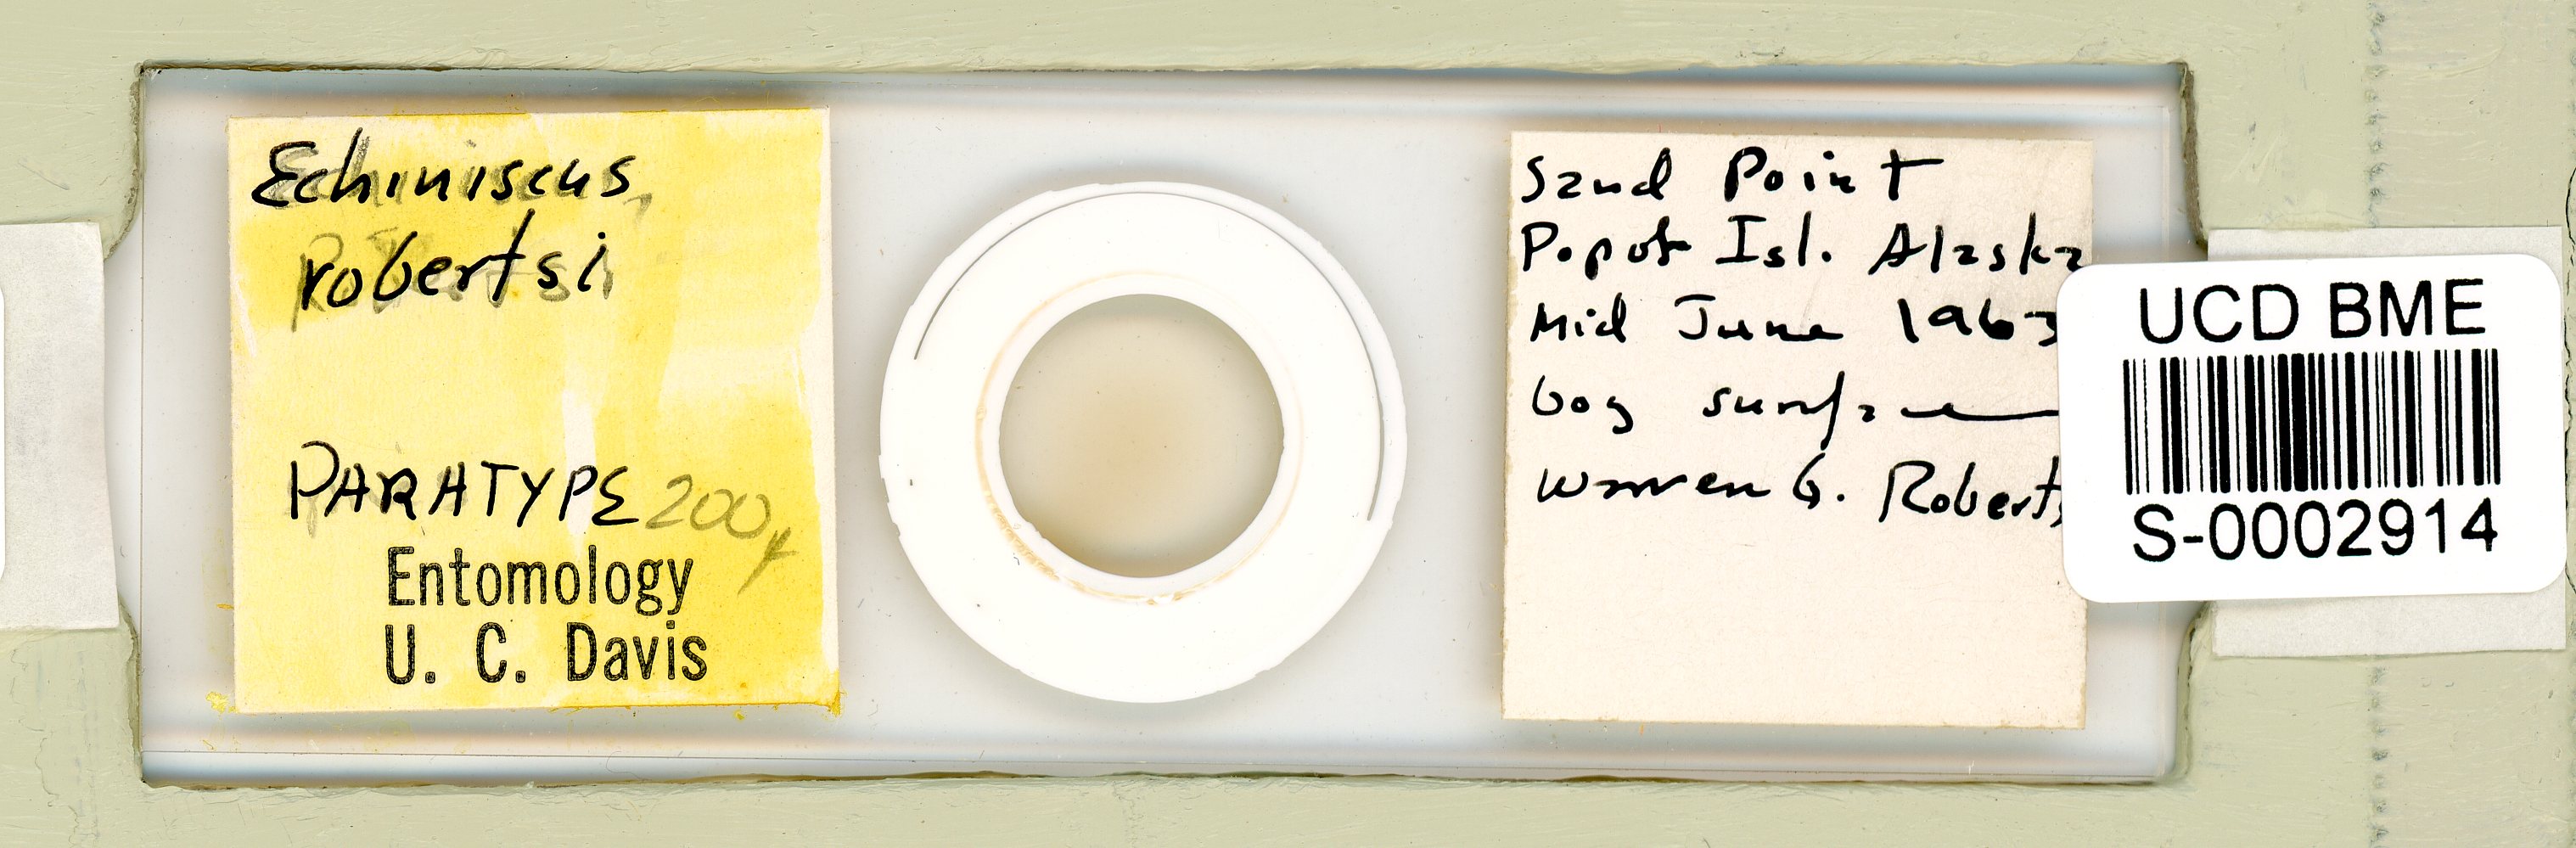 Echiniscus
robertsi
PARATYPE 200μ
Entomology
U. C. Davis
Sand Point
Popof Isl. Alaska
Mid June 1963
bog surface
Warren G. Roberts
UCD BME
S-0002914